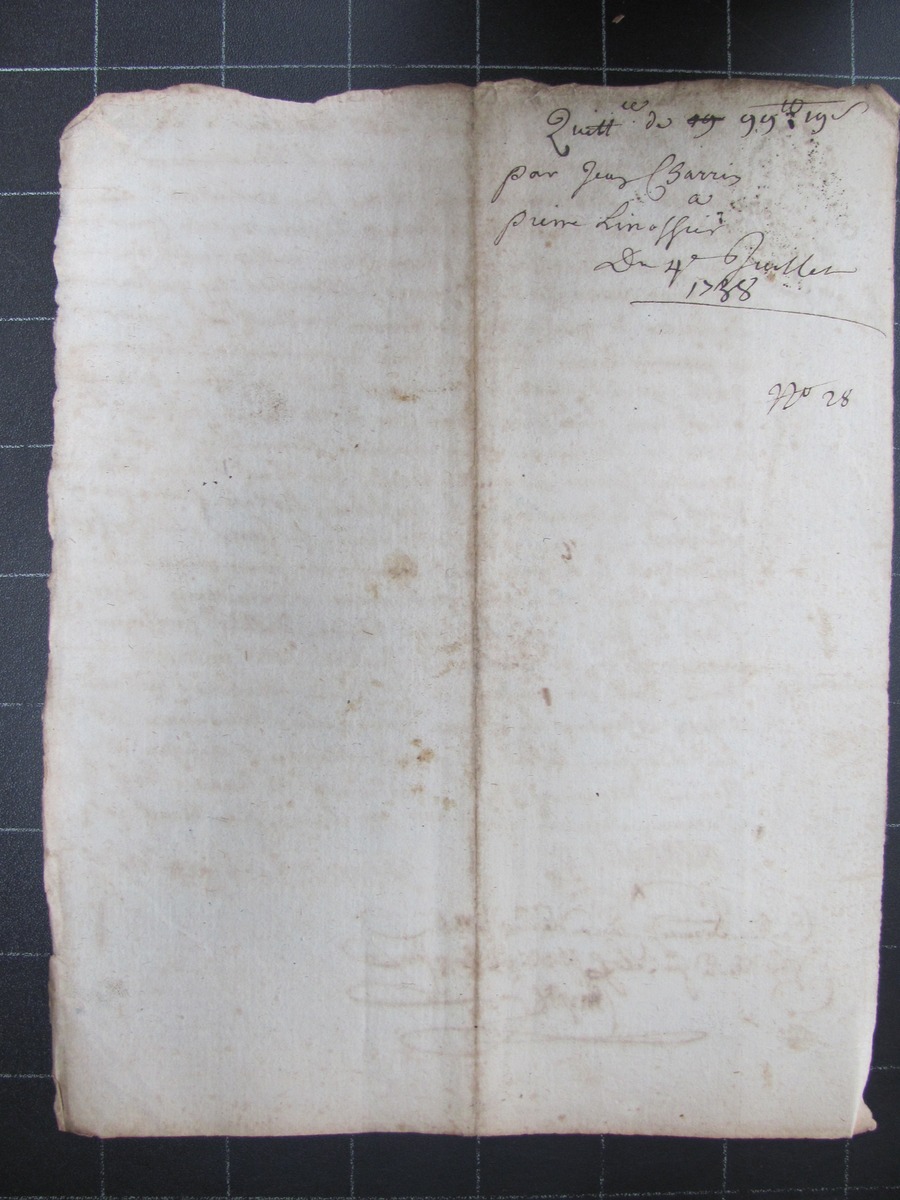 Quitt.ce de 19 99tt 19s
par Jean Barrin
a
pierre Linossier
Du 4e Juillet
1738
No 28